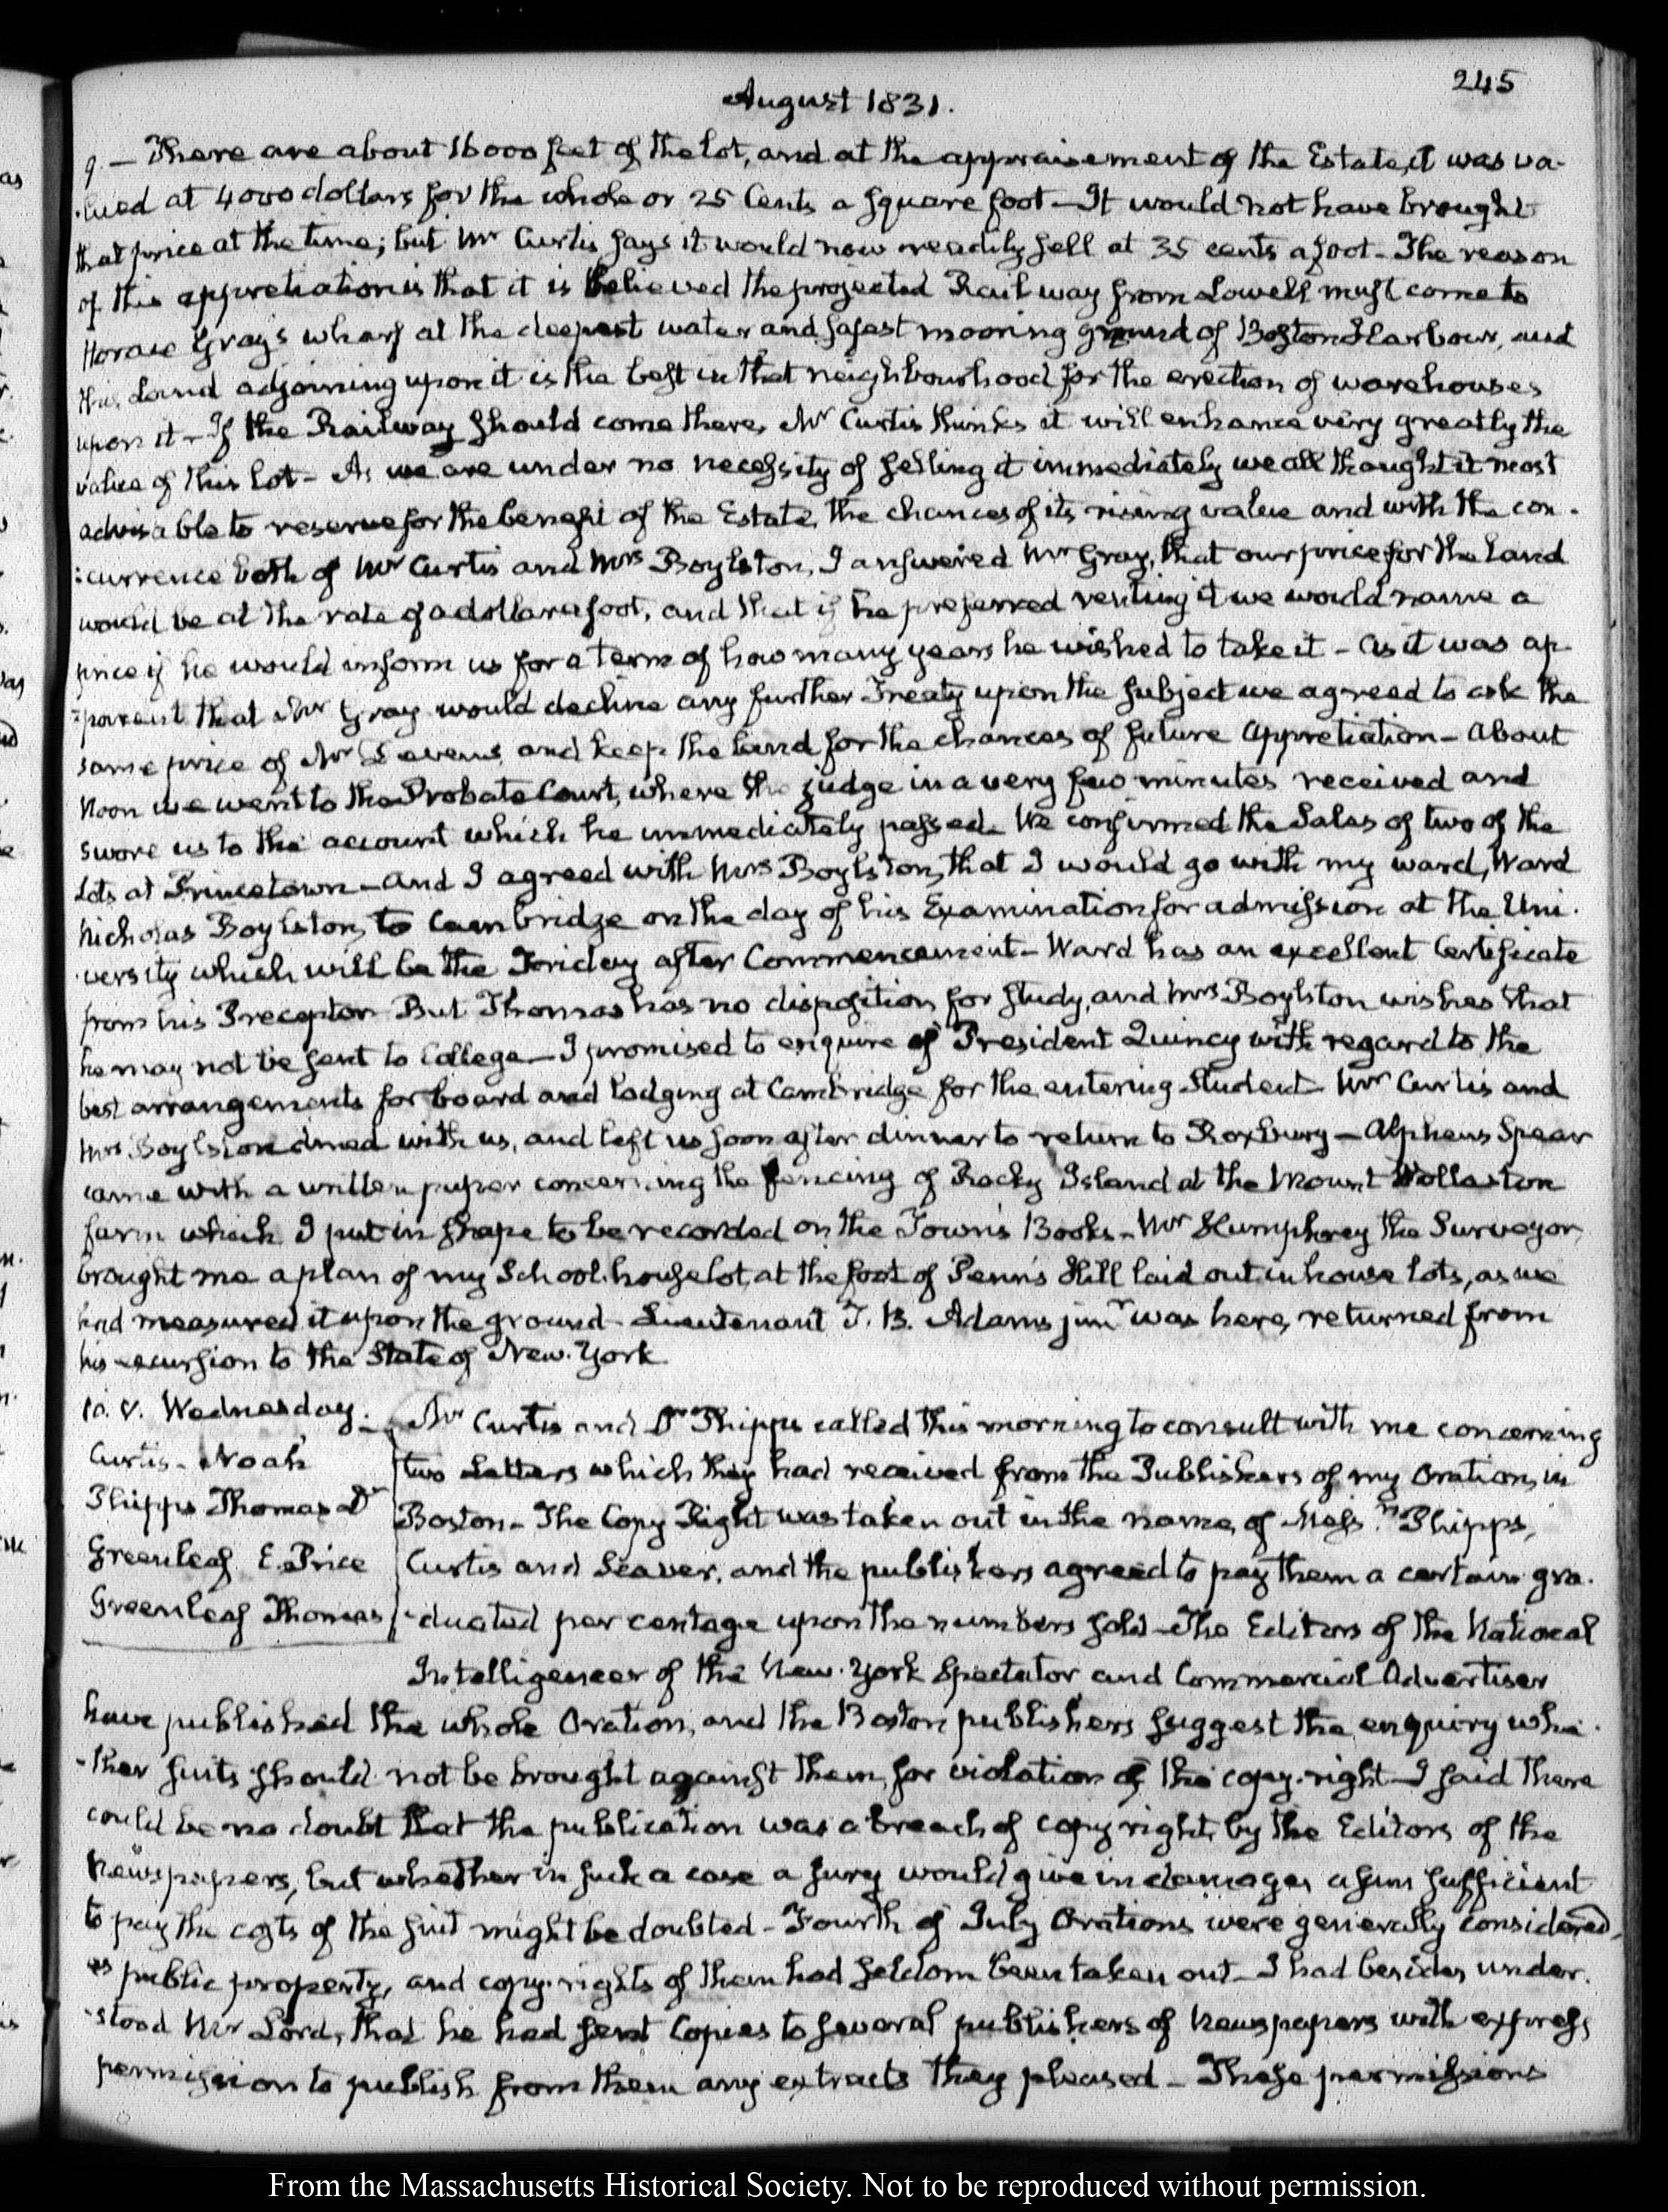 245
August 1831.
9 — There are about 16000 feet of the lot, and at the appraisement of the Estate, it was va-
-lued at 4000 dollars for the whole or 25 Cents a square foot — It would not have brought
that price at the time; but Mr Curtis says it would now readily sell at 35 cents a foot — The reason
of this appretiation is that it is believed the projected Rail way from Lowell must come to
Horace Gray's wharf at the deepest water and safest mooring ground of Boston Harbour, and
this Land adjoining upon it is the best in that neighbourhood for the erection of warehouses
upon it — If the Railway should come there, Mr Curtis thinks it will enhance very greatly the
value of this lot — As we are under no necessity of selling it immediately we all thought it most
advisable to reserve for the benefit of the Estate, the chances of its rising value and with the con-
:currence both of Mr Curtis and Mrs Boylston, I answered Mr Gray, that our price for the Land
would be at the rate of a dollar a foot, and that if he preferred renting it we would name a
price if he would inform us for a term of how many years he wished to take it — as it was ap-
-parent that Mr Gray would decline any further Treaty upon the subject we agreed to ask the
same price of Mr and keep the Land for the chances of future appretiation — About
Noon we went to the Probate Court, where the judge in a very few minutes received and
swore us to the account which he immediately passed. We confirmed the Sales of two of the
Lots at Princetown — and I agreed with Mrs Boylston, that I would go with my ward, Ward
Nicholas Boylston, to Cambridge on the day of his Examination for admission at the Uni-
-versity which will be the Friday after Commencement — Ward has an excellent Certificate
from his Preceptor But Thomas has no disposition for study, and Mrs Boylston wishes that
he may not be sent to College — I promised to enquire of President Quincy with regard to the
best arrangements for board and lodging at Cambridge for the entering Student Mr Curtis and
Mrs Boylston dined with us, and left us soon after dinner to return to Roxbury — Alpheus Spear
came with a written paper concerning the fencing of Rocky Island at the Mount Wollaston
farm which I put in shape to be recorded on the Town's Books — Mr Humphrey the Surveyor,
brought me a plan of my School-house lot, at the foot of Penn's Hill laid out in house lots, as we
had measured it upon the ground — Lieutenant T. B. Adams junr was here, returned from
his excursion to the State of New-York
10. V. Wednesday.
Curtis — Noah
Phipps Thomas Dr
Greenleaf E. Price
Greenleaf Thomas
Mr Curtis and Dr Phipps called this morning to consult with me concerning
two Letters which they had received from the Publishers of my Oration, in
Boston — The Copy Right was taken out in the name of Mess.rs Phipps,
Curtis and Seaver, and the publishers agreed to pay them a certain gra-
-duated per centage upon the numbers sold — The Editors of the National
Intelligencer of the New-York Spectator and Commercial Advertiser
have published the whole Oration, and the Boston publishers suggest the enquiry whe-
-ther suits should not be brought against them, for violation of the copy-right — I said there
could be no doubt that the publication was a breach of copy right, by the Editors of the
Newspapers, but whether in such a case a jury would give in damages a sum sufficient
to pay the costs of the suit might be doubted — Fourth of July Orations were generally considered,
as public property, and copy-rights of them had seldom been taken out — I had besides under-
-stood Mr Lord, that he had sent Copies to several publishers of Newspapers with express
permission to publish from them any extracts they pleased — These permissions
From the Massachusetts Historical Society. Not to be reproduced without permission.